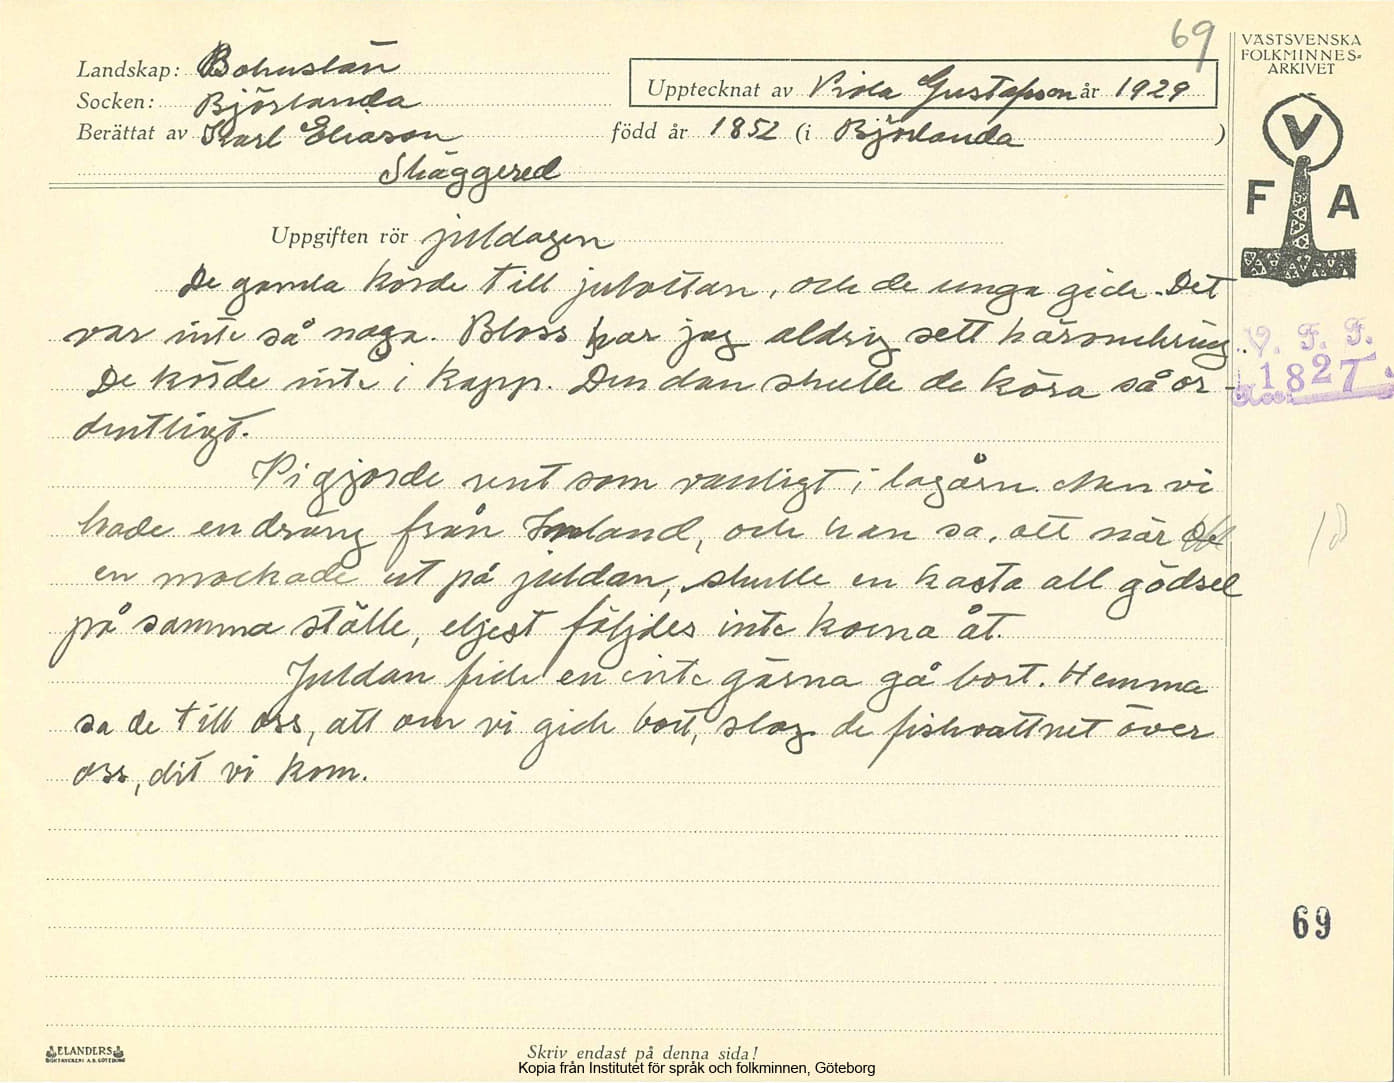 69
VÄSTSVENSKA
FOLKMINNES-
ARKIVET
Landskap: Bohuslän
Socken: Björlanda
Upptecknat av Viola Gustafsson år 1929
Berättat av Karl Eliason född år 1852 (i Björlanda )
Skäggered
V
F A
Uppgiften rör juldagen
De gamla körde till julottan, och de unga gick. Det
var inte så noga. Bloss har jag aldrig sett häromkring.
De körde inte i kapp. Den dan skulle de köra så or-
dentligt.
V. F. F.
1827
Vi gjorde rent som vanligt i lagårn. Men vi
hade en dräng från Inland, och han sa, att när
en mockade ut på juldan, skulle en kasta all gödsel
på samma ställe, eljest följdes inte korna åt.
Juldan fick en inte gärna gå bort. Hemma
sa de till oss, att om vi gick bort, slog de fiskvattnet över
oss, dit vi kom.
69
ELANDERS
BOKTRYCKERI A.B. GÖTEBORG
Skriv endast på denna sida!
Kopia från Institutet för språk och folkminnen, Göteborg